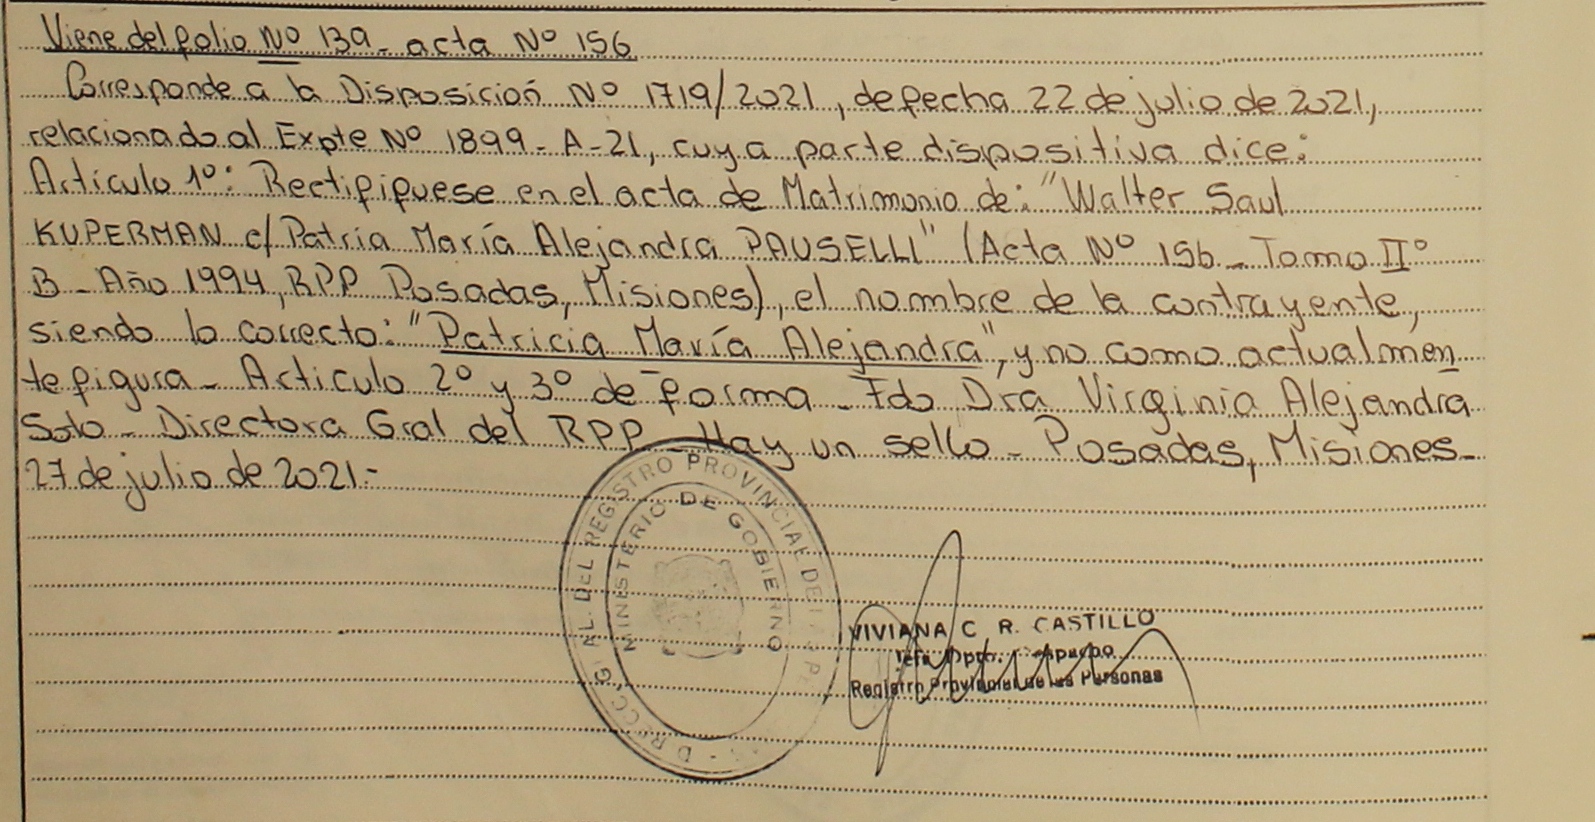 Viene del folio Nº 139 - acta Nº 156
Corresponde a la Disposición Nº 1719/2021, de fecha 22 de julio de 2021,
relacionado al Expte Nº 1899 - A - 21, cuya parte dispositiva dice:
Artículo 1º: Rectifíquese en el acta de Matrimonio de: "Walter Saul
KUPERMAN c/ Patria María Alejandra PAUSELLI" (Acta Nº 156 - Tomo IIº
B - Año 1994, RPP Posadas, Misiones), el nombre de la contrayente,
siendo lo correcto: "Patricia María Alejandra", y no como actualmen
te figura - Articulo 2º y 3º de forma - Fdo Dra Virginia Alejandra
Soto - Directora Gral del RPP - Hay un sello - Posadas, Misiones -
27 de julio de 2021.-
DIRECC. GRAL. DEL REGISTRO PROVINCIAL DE LAS PE
MINISTERIO DE GOBIERNO
VIVIANA C. R. CASTILLO
Jefa Dpto. Despacho
Registro Provincial de las Personas